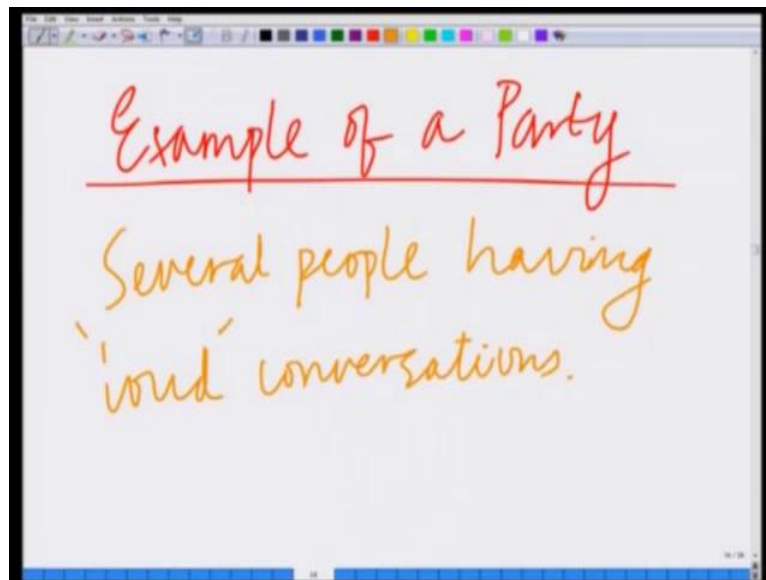 File Edit View Insert Actions Tools Help
Example of a Party
Several people having
'loud' conversations.